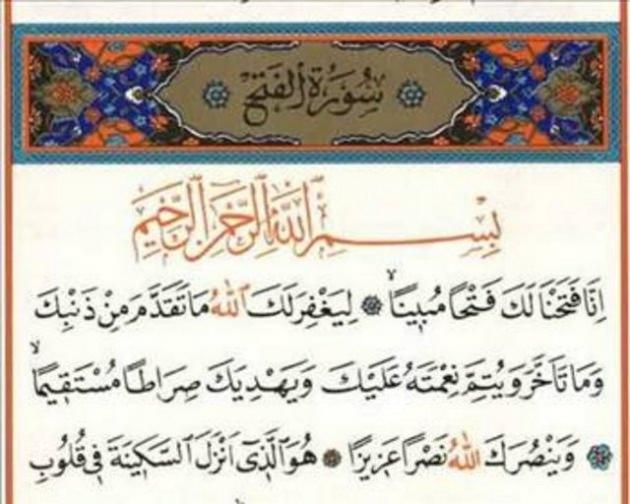 سُورَةُ الْفَتْحِ
بِسْمِ اللّٰهِ الرَّحْمٰنِ الرَّحٖيمِ
اِنَّا فَتَحْنَا لَكَ فَتْحًا مُبٖينًاۙ لِيَغْفِرَ لَكَ اللّٰهُ مَا تَقَدَّمَ مِنْ ذَنْبِكَ
وَمَا تَاَخَّرَ وَيُتِمَّ نِعْمَتَهُ عَلَيْكَ وَيَهْدِيَكَ صِرَاطًا مُسْتَقٖيمًاۙ
وَيَنْصُرَكَ اللّٰهُ نَصْرًا عَزٖيزًا هُوَ الَّذٖٓى اَنْزَلَ السَّكٖينَةَ فٖى قُلُوبِ